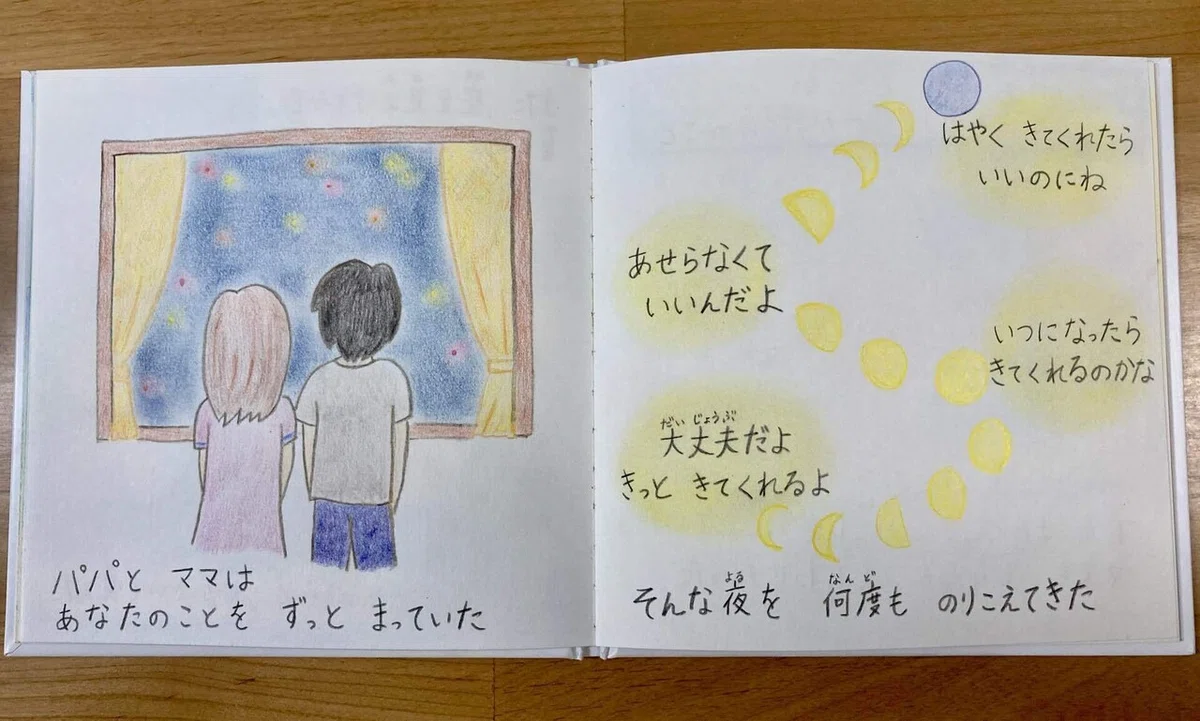 パパと ママは
あなたのことを ずっと まっていた
はやく きてくれたら
いいのにね
あせらなくて
いいんだよ
いつになったら
きてくれるのかな
だいじょうぶ
大丈夫だよ
きっと きてくれるよ
よる なんど
そんな夜を 何度も のりこえてきた